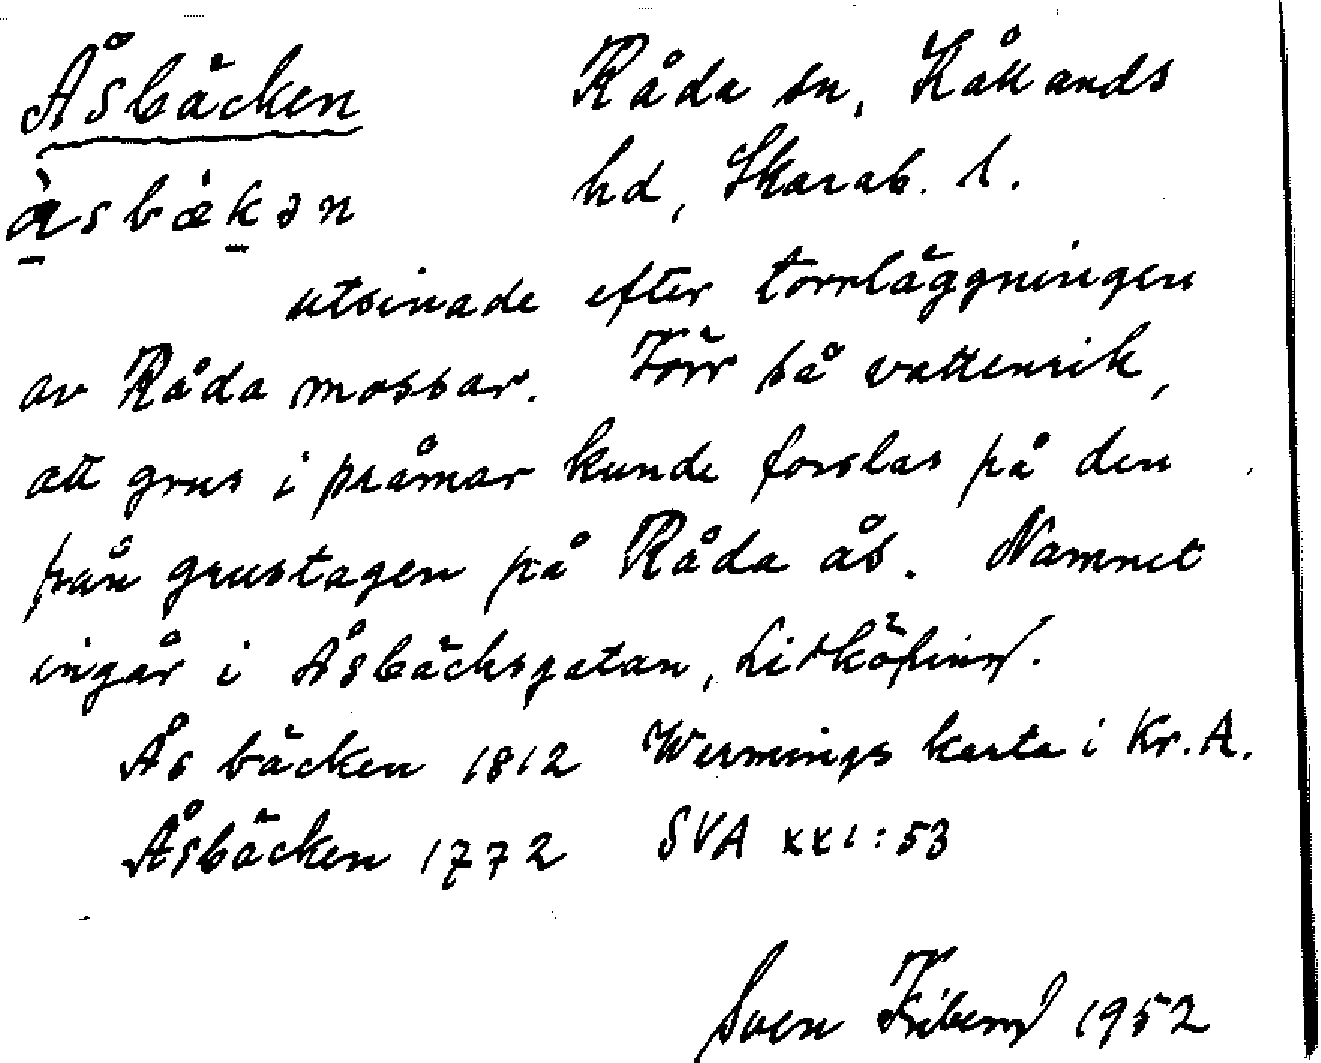 Åsbäcken Råda sn, Kållands
åsbækən hd, Skarab. l.
utsinade efter torrläggningen
av Råda mossar. Förr så vattenrik,
att grus i pråmar kunde forslas på den
från grustagen på Råda ås. Namnet
ingår i Åsbäcksgatan, Lidköping.
Ås bäcken 1812 Wermings karta i Kr.A.
Åsbäcken 1772 SVA XXI:53
Sven Friberg 1952